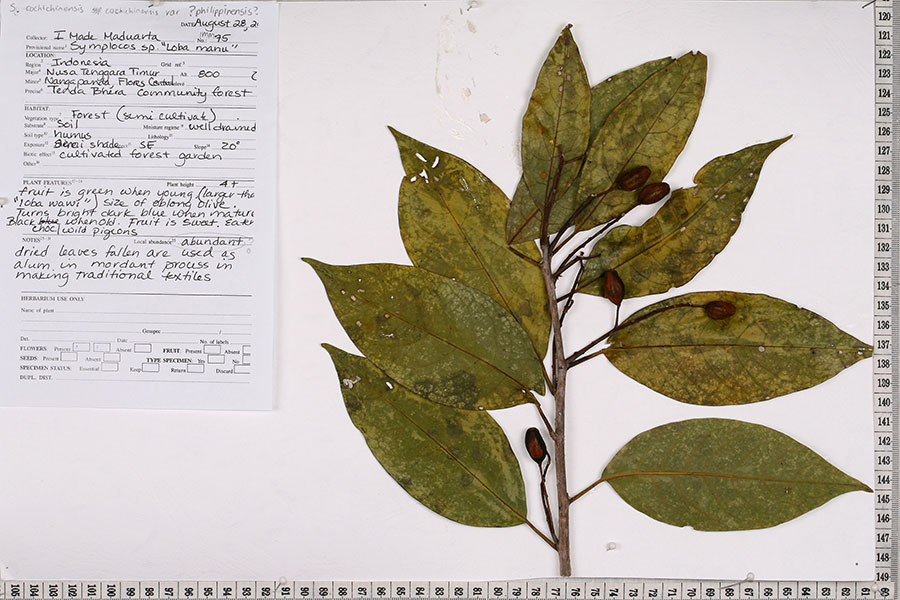 S. cochinchinensis cochinchinensis var ?philippinensis?
DATE August 28, 2
Collector: I Made Maduarta No: IMM 95
Provisional name: Symplocos sp. "Loba manu"
LOCATION:
Region: Indonesia Grid ref.
Major: Nusa Tenggara Timur Alt 800
Minor: Nangapanda, Flores Central
Precise: Tenda Bhera community forest
HABITAT:
Vegetation type: Forest (semi cultivat)
Substrate: Soil Moisture regime: well drained
Soil type: humus Lithology
Exposure: Semi shade Aspect: SE Slope: 20°
Biotic effect: cultivated forest garden
Other:
PLANT FEATURES Plant height 4+
fruit is green when young (larger tha
"loba wawi") size of oblong olive.
Turns bright dark blue when mature
Black blue when old. Fruit is sweet. Eaten
choc/wild pigeons
NOTES Local abundance: abundant
dried leaves fallen are used as
alum in mordant prouss in
making traditional textiles
HERBARIUM USE ONLY
Name of plant
Genspec /
Det. Date No. of labels
FLOWERS: Present Absent FRUIT: Present Absent
SEEDS: Present Absent TYPE SPECIMEN: Yes No
SPECIMEN STATUS: Essential Keep Return Discard
DUPL. DIST.
120
121
122
123
124
125
126
127
128
129
130
131
132
133
134
135
136
137
138
139
140
141
142
143
144
145
146
147
148
149
105 104 103 102 101 100 99 98 97 96 95 94 93 92 91 90 89 88 87 86 85 84 83 82 81 80 79 78 77 76 75 74 73 72 71 70 69 68 67 66 65 64 63 62 61 60